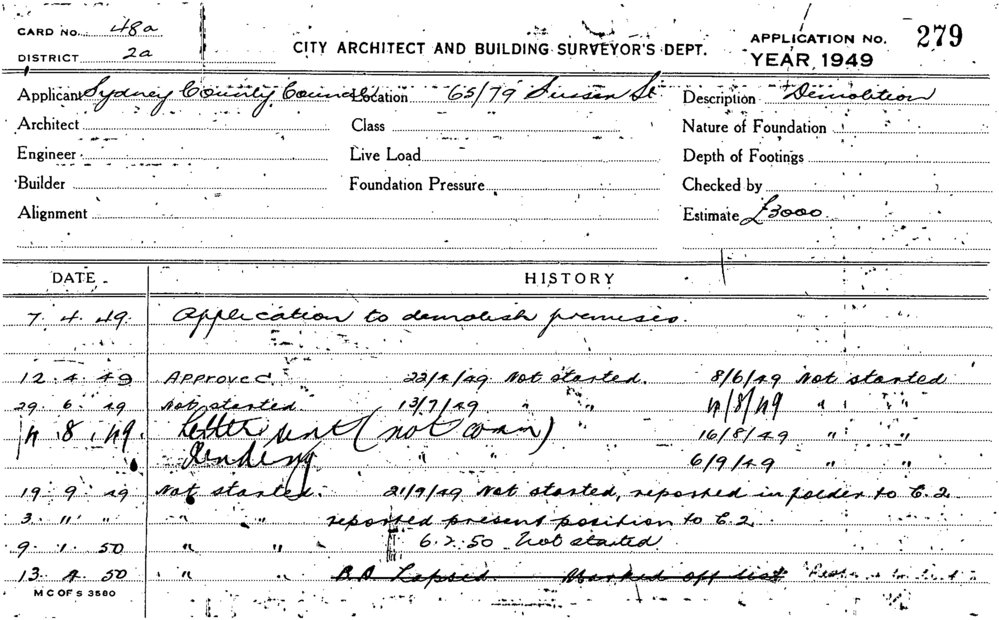 CARD NO. 48a
DISTRICT 2a
CITY ARCHITECT AND BUILDING SURVEYOR'S DEPT.
APPLICATION NO. 279
YEAR 1949
Applicant Sydney County Council Location 65/79 Sussex St Description Demolition
Architect Class Nature of Foundation
Engineer Live Load Depth of Footings
Builder Foundation Pressure Checked by
Alignment Estimate £3000
DATE HISTORY
7. 4. 49. Application to demolish premises.
12. 4. 49 APPROVED. 22/4/49 Not started. 8/6/49 Not started
29. 6. 49 Not started. 13/7/49 " " 4/8/49 " "
4. 8. 49. Letter sent (not com) 16/8/49 " "
Pending " " 6/9/49 " "
19. 9. 49 Not started. 21/9/49 Not started, reported in folder to E.2
3. " " " " reported present position to E.2
9. 1. 50 " " 6.2.50 Not started
13. 4. 50 " " B.A. Lapsed. Marked off list
M C OF S 3580